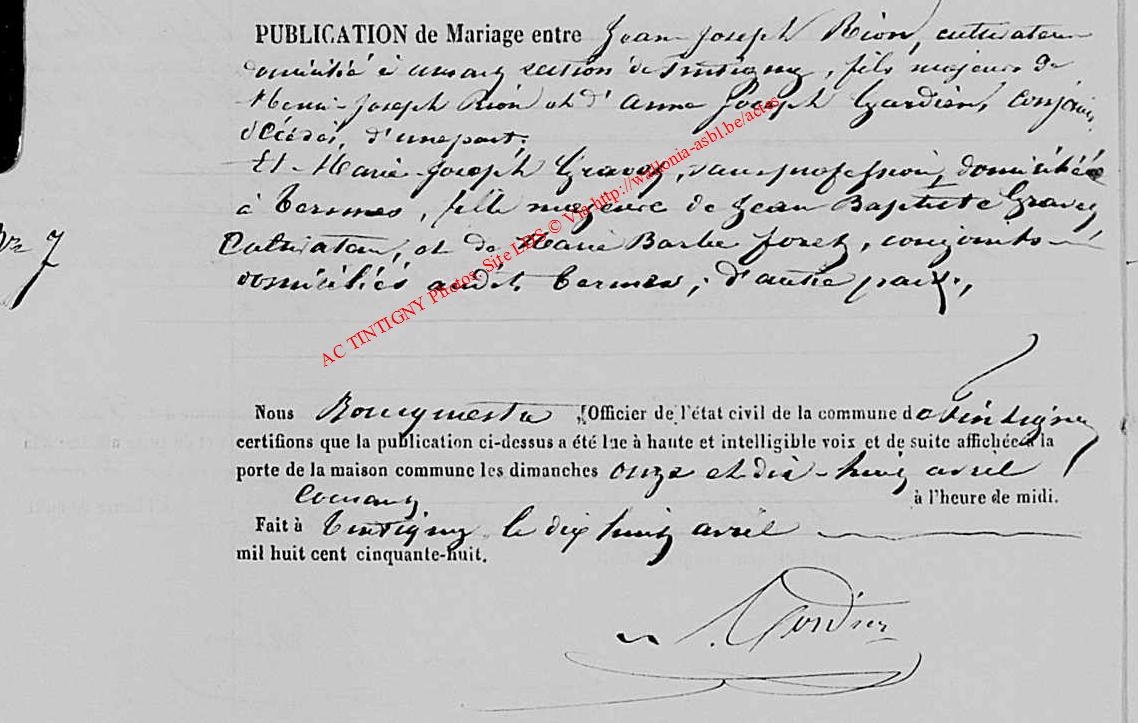 PUBLICATION de Mariage entre Jean Joseph Rion, cultivateur
domicilié à ansart section de Tintigny, fils majeur de
Henri-Joseph Rion et d'Anne Joseph Gardien, conjoints
décédés, d'une part.
Et Marie-Joseph Gravez, sans profession, domiciliée
à Termes, fille majeure de Jean Baptiste Gravez
Cultivateur, et de Marie Barbe foret, conjoints
domiciliés audit Termes, d'autre part.,
Nº 7
AC TINTIGNY Photos. Site LDS © Via http://wallonia-asbl.be/actes
Nous Bourgmestre Officier de l'état civil de la commune de Tintigny
certifions que la publication ci-dessus a été lue à haute et intelligible voix et de suite affichée à la
porte de la maison commune les dimanches onze et dix-huit avril
Courant à l'heure de midi.
Fait à Tintigny le dix huit avril
mil huit cent cinquante-huit.